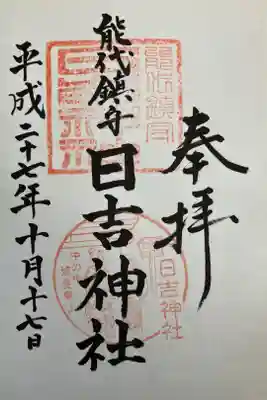 奉拝
能代鎮守
日吉神社
平成二十七年十月十七日
日吉神社